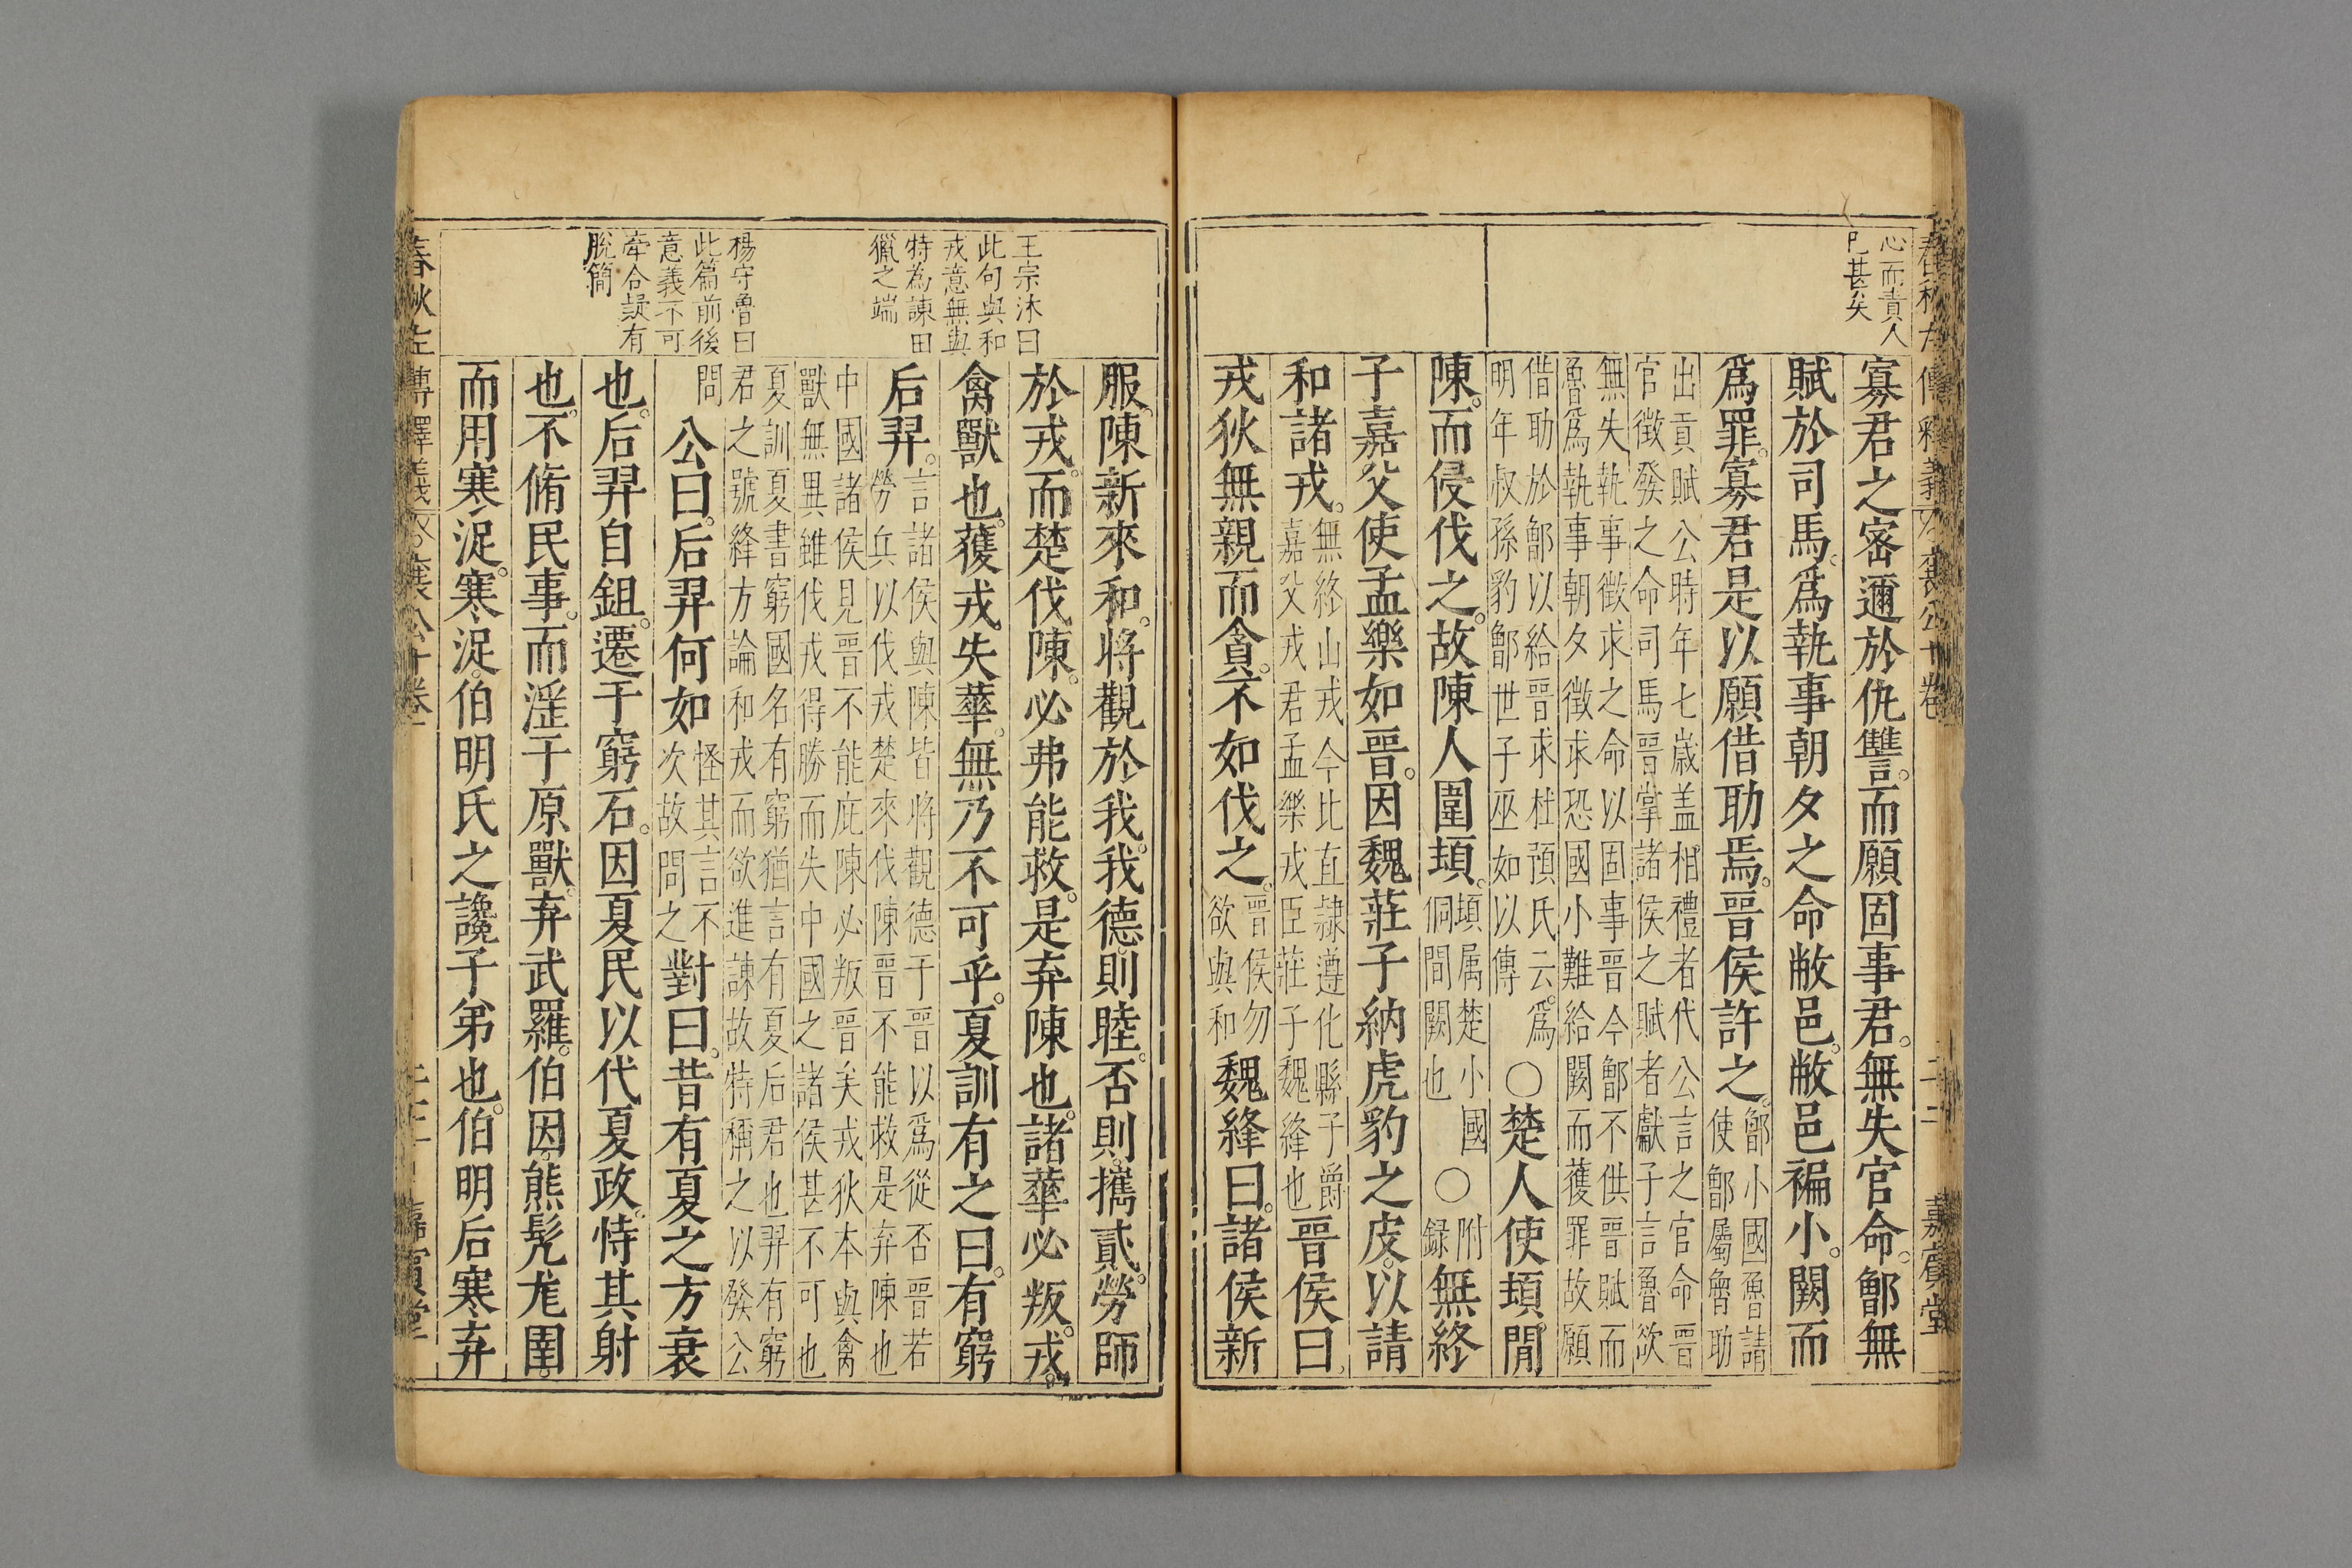 心而責人
已甚矣
寡君之密邇於仇讐而願固事君無失官命鄫無
賦於司馬爲執事朝夕之命敝邑敝邑褊小闕而
爲罪寡君是以願借助焉晉侯許之
鄫小國魯請
使鄫屬魯助
出貢賦公時年七歲盖相禮者代公言之官命晉
官徵發之命司馬晉掌諸侯之賦者獻子言魯欲
無失執事徵求之命以固事晉今鄫不供晉賦而
魯爲執事朝夕徵求恐國小難給闕而獲罪故願
借助於鄫以給晉求杜預氏云爲
明年叔孫豹鄫世子巫如以傳
○楚人使頓閒
陳而侵伐之故陳人圍頓
頓属楚小國
侗間闕也
○
附
録
無終
子嘉父使孟樂如晉因魏莊子納虎豹之皮以請
和諸戎
無終山戎今比直隷遵化縣子爵
嘉父戎君孟樂戎臣莊子魏絳也
晉侯曰
戎狄無親而貪不如伐之
晉侯勿
欲與和
魏絳曰諸侯新
春秋左傳釋義 襄公十卷 二十二 嘉賔堂
王宗沐曰
此句與和
戎意無與
特為諫田
獵之端
楊守魯曰
此篇前後
意義不可
牽合疑有
脫簡
服陳新來和將觀於我我德則睦否則攜貳勞師
於戎而楚伐陳必弗能救是弃陳也諸華必叛戎
禽獸也獲戎失華無乃不可乎夏訓有之曰有窮
后羿
言諸侯與陳皆將觀德于晉以爲從否晉若
勞兵以伐戎楚來伐陳晉不能救是弃陳也
中國諸侯見晉不能庇陳必叛晉矣戎狄本與禽
獸無異雖伐戎得勝而失中國之諸侯甚不可也
夏訓夏書窮國名有窮猶言有夏后君也羿有窮
君之號絳方論和戎而欲進諫故特稱之以發公
問
公曰后羿何如
怪其言不
次故問之
對曰昔有夏之方衰
也后羿自鉏遷于窮石因夏民以代夏政恃其射
也不脩民事而淫于原獸弃武羅伯因熊髡尨圉
而用寒浞寒浞伯明氏之讒子弟也伯明后寒弃
春秋左傳釋義 襄公十卷 嘉賔堂